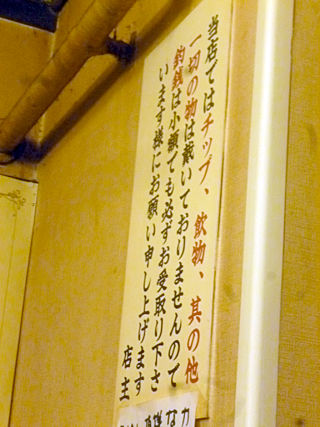 当店ではチップ、飲物、其の他
一切の物は戴いておりませんので
釣銭は小額でも必ずお受取り下さ
います様にお願い申し上げます
店主